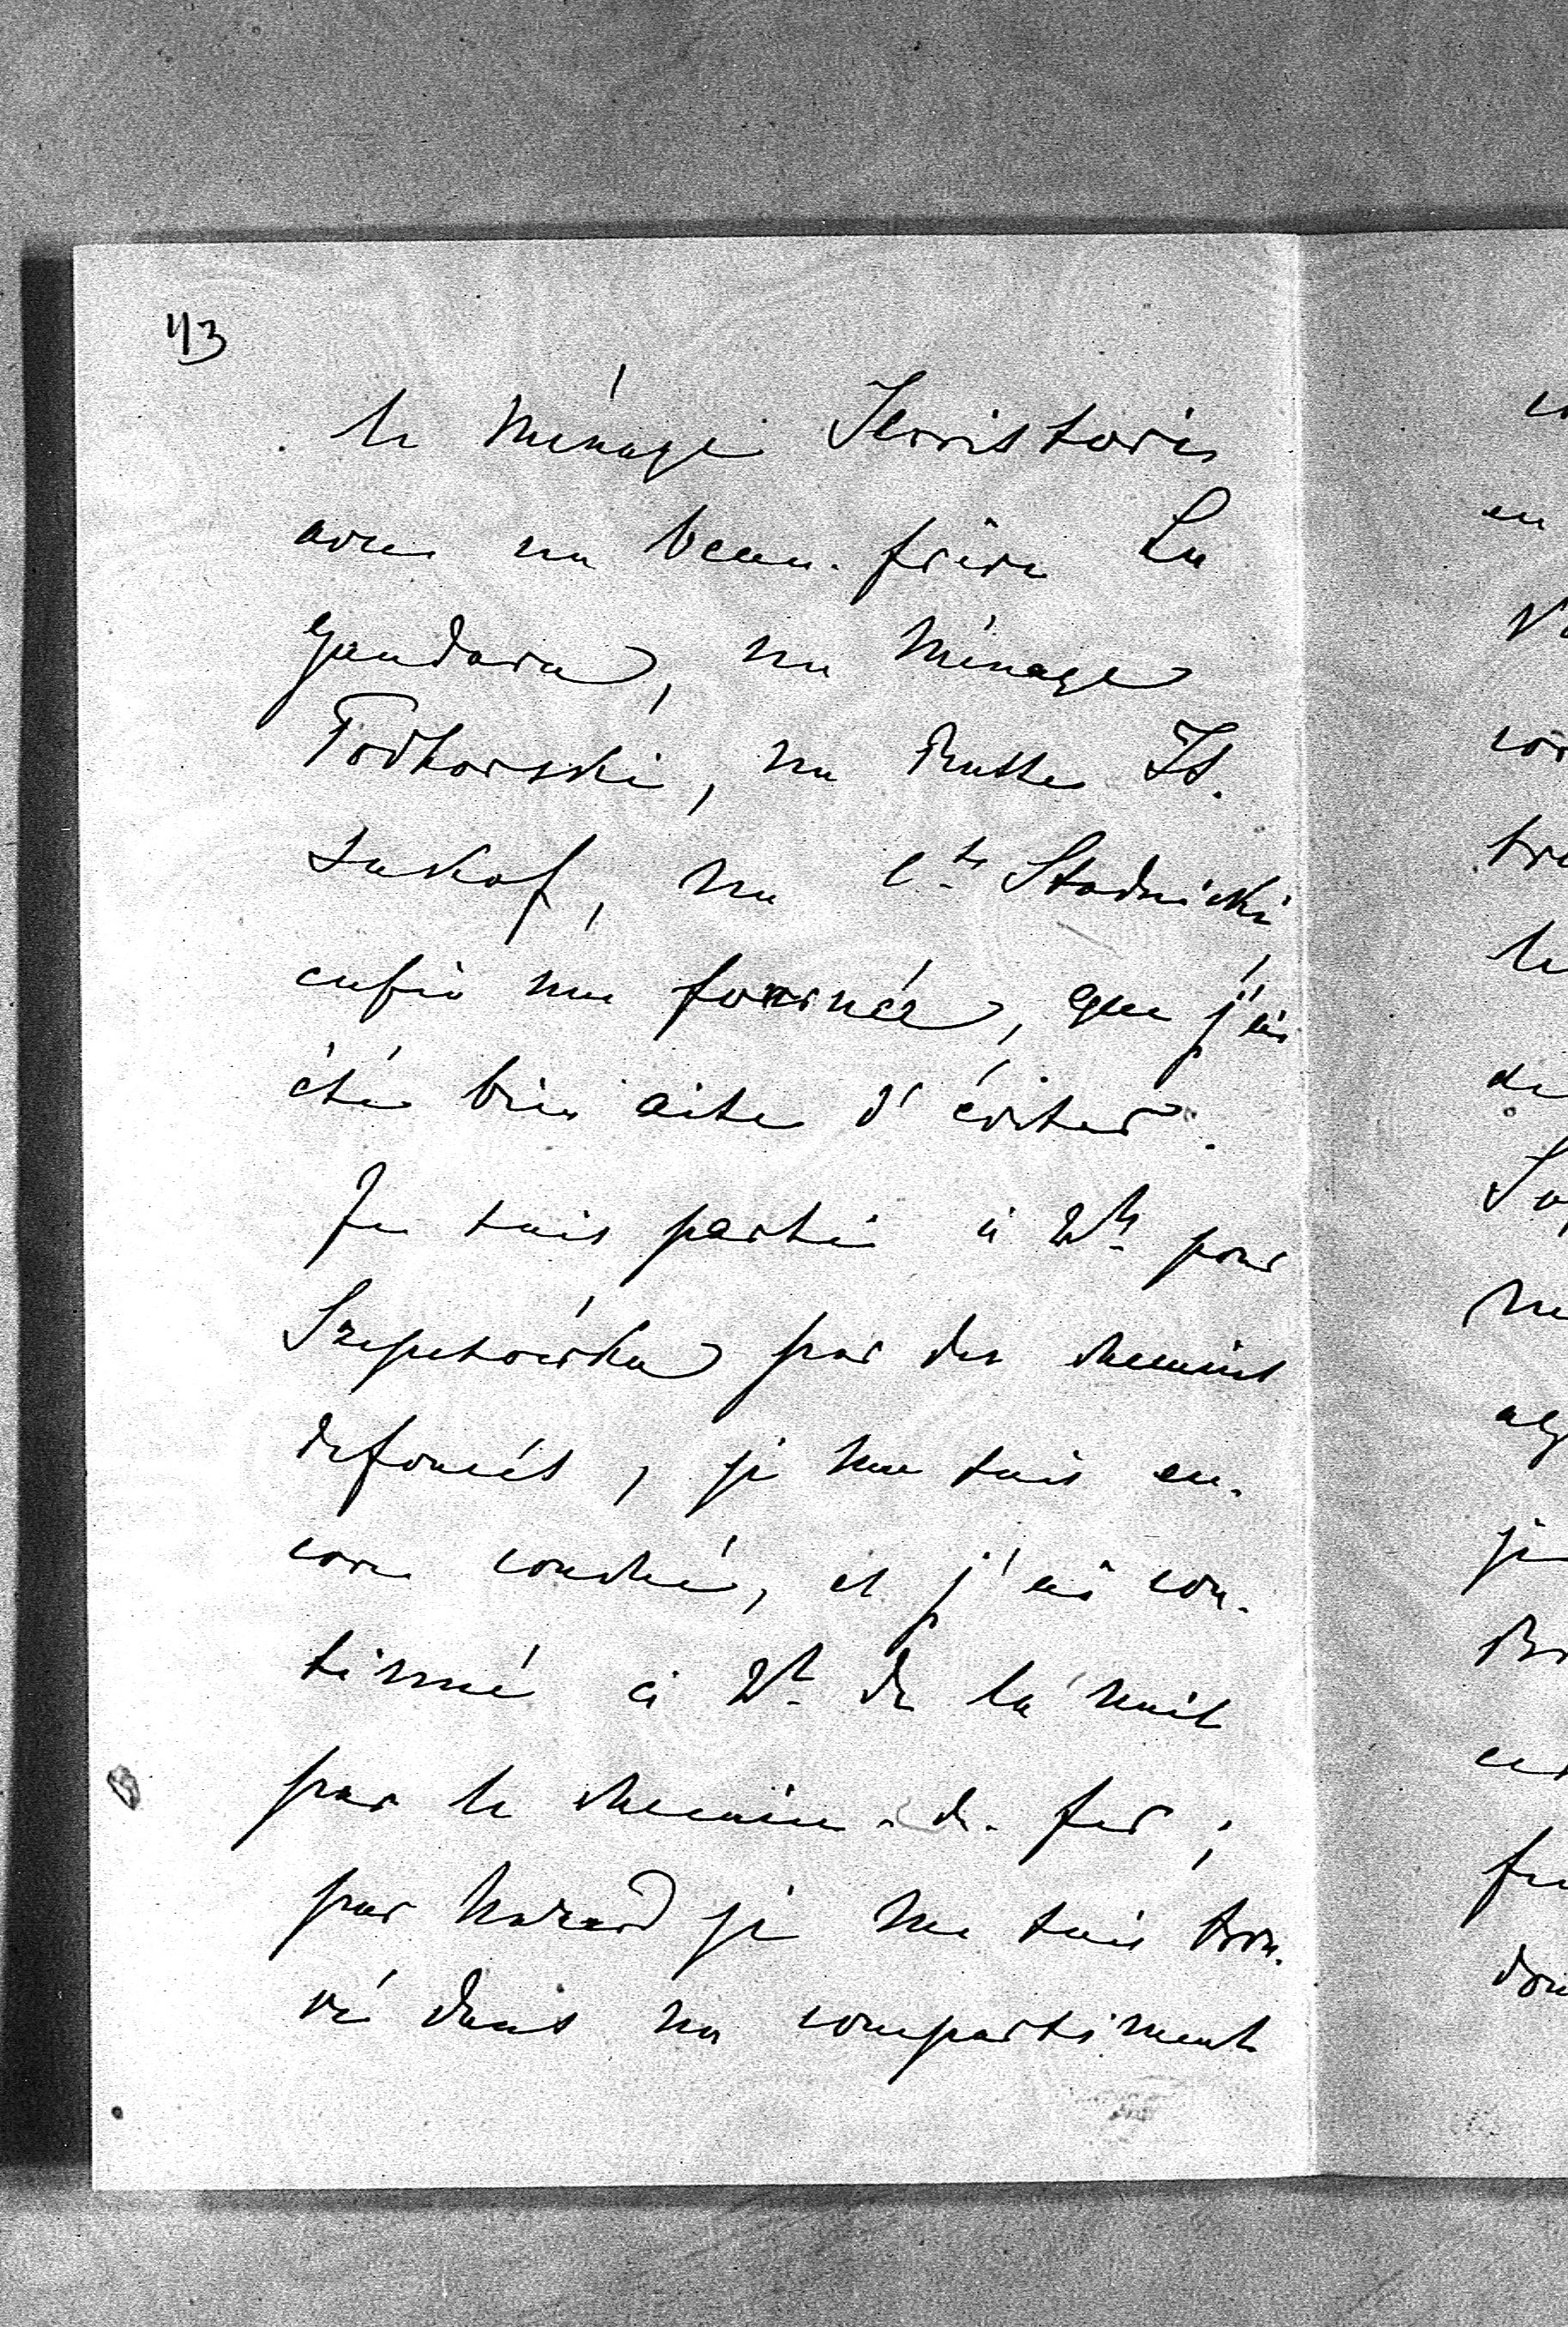 43
le ménage Serristori
avec un beau-frère La
Gandara, un ménage
Podhorski, un Russe St.
sukof, un Cte Stadnicki
enfin une fournée, que j'ai
été bien aise d'éviter.
Je suis parti à 2h pour
Szepetówka par des chemins
defoncés, je me suis en-
core couché, et j'ai con-
tinué à 2h de la nuit
par le chemin-de-fer;
par hazard je me suis trou-
vé dans un compartiment